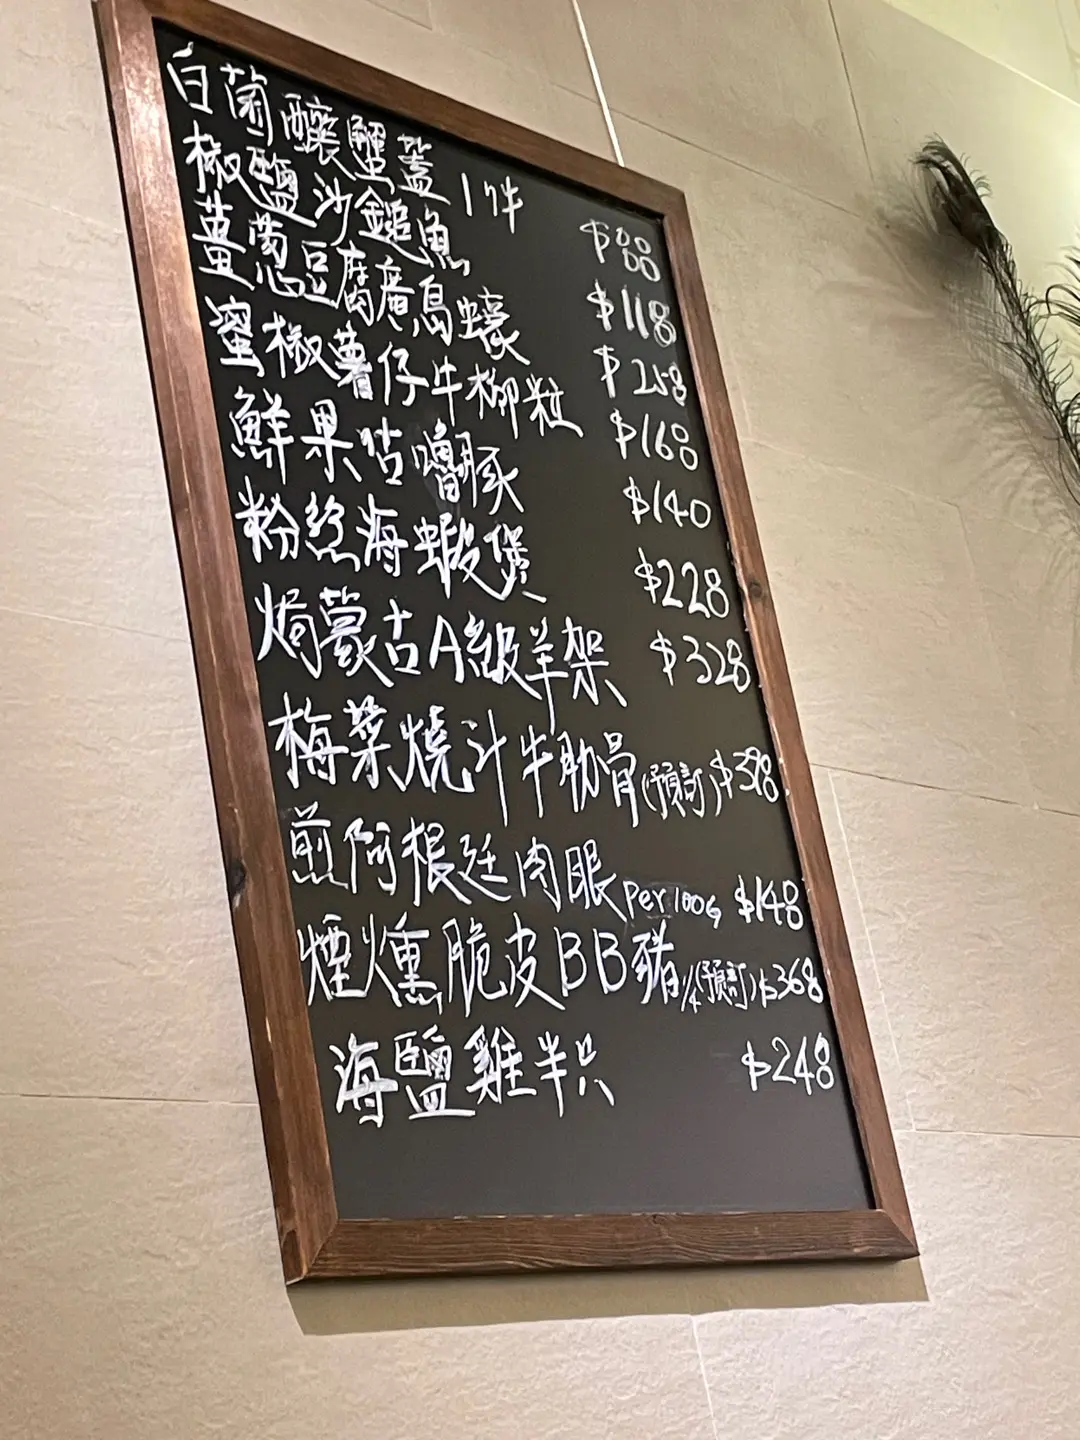 白菌釀蟹蓋 1件 $88
椒鹽沙鎚魚 $118
薑蔥豆腐廣島蠔 $258
蜜椒薯仔牛柳粒 $168
鮮果咕嚕豚 $140
粉絲海蝦煲 $228
焗蒙古A級羊架 $328
梅菜燒汁牛肋骨(預訂) $398
煎阿根廷肉眼 per 100G $148
煙燻脆皮BB豬 1/4(預訂) $368
海鹽雞半只 $248